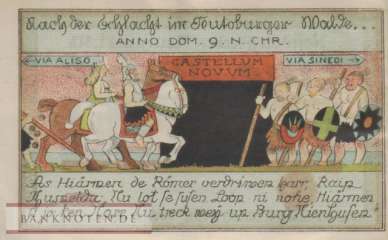 Nach der Schlacht im Teutoburger Walde...
ANNO DOM. 9. N. CHR.
VIA ALISO
CASTELLUM NOVUM
VIA SINEDI
As Hiärmen de Römer verdriwen harr, Raip
Thusnelda, Nu lot se lusen Loop ni nohe, Hiärmen
treck weg up Burg Nienhusen"
BANKNOTEN.DE